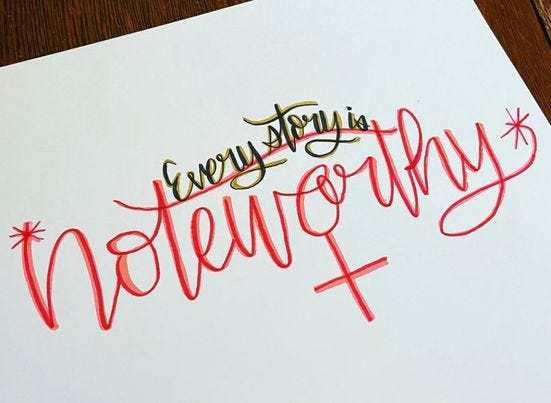 Every story is
*noteworthy*